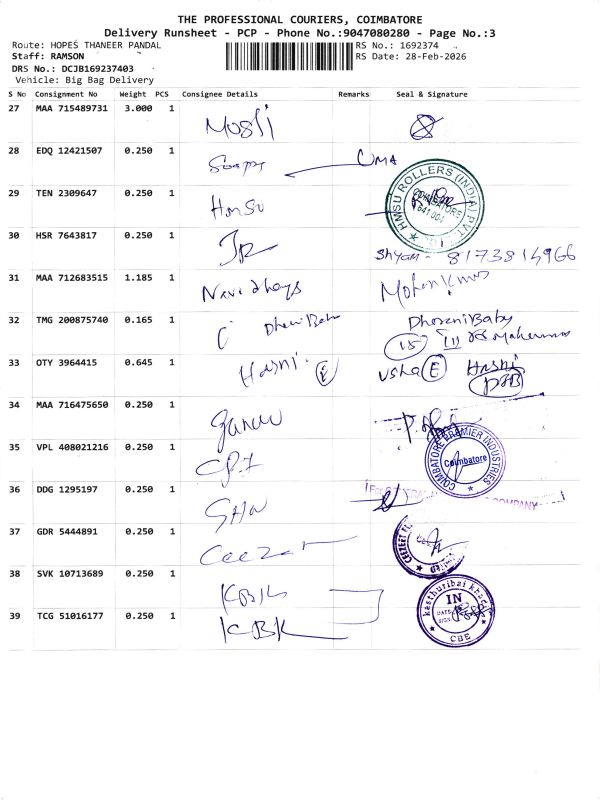 THE PROFESSIONAL COURIERS, COIMBATORE
Delivery Runsheet - PCP - Phone No.:9047080280 - Page No.:3
Route: HOPES THANEER PANDAL
RS No.: 1692374
Staff: RAMSON
RS Date: 28-Feb-2026
DRS No.: DCJB169237403
Vehicle: Big Bag Delivery
S No Consignment No Weight PCS Consignee Details Remarks Seal & Signature
27 MAA 715489731 3.000 1
28 EDQ 12421507 0.250 1 UMA
29 TEN 2309647 0.250 1
HMSU ROLLERS (INDIA) PVT.
COIMBATORE
641 004
30 HSR 7643817 0.250 1
Shyam - 8173814966
31 MAA 712683515 1.185 1
32 TMG 200875740 0.165 1 DharaniBaby
33 OTY 3964415 0.645 1 Hasni Usha E Hasni
34 MAA 716475650 0.250 1
35 VPL 408021216 0.250 1 CPI
COIMBATORE PREMIER INDUSTRIES
Coimbatore
36 DDG 1295197 0.250 1
COMPANY
37 GDR 5444891 0.250 1 Ceezet
38 SVK 10713689 0.250 1 KBK
kasthuribai khadi
IN
DATE
SIGN
CBE
39 TCG 51016177 0.250 1 KBK